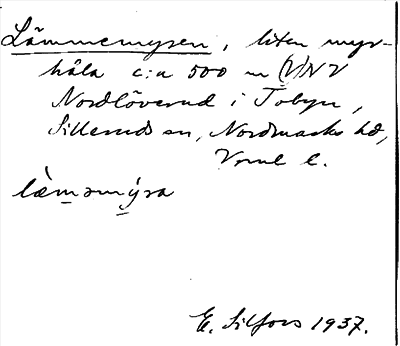 Lämmemyren, liten myr-
håla c:a 500 m (V)NV
Nordlöverud i Tobyn,
Silleruds sn, Nordmarks hd,
Vrml l.
læməmýra
E. Silfors 1937.